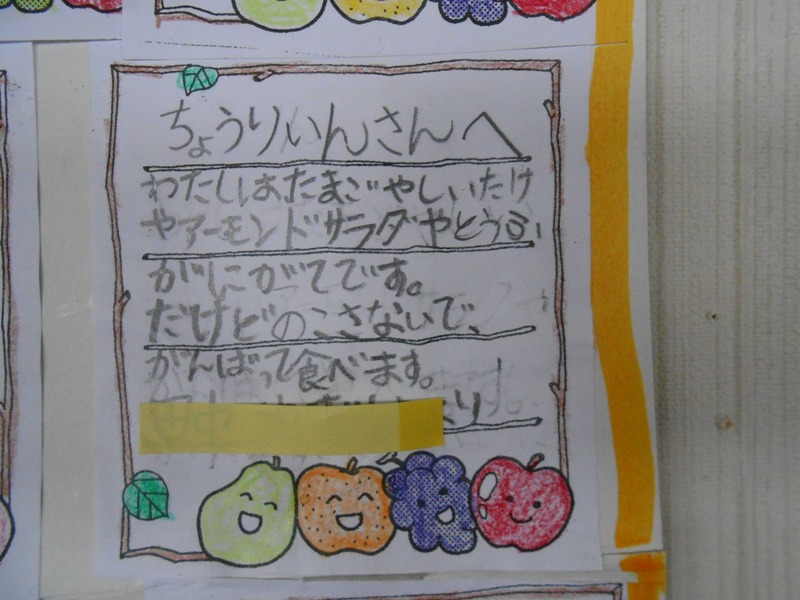 ちょうりいんさんへ
わたしはたまごやしいたけ
やアーモンドサラダやとうふ
がにがてです。
だけどのこさないで、
がんばって食べます。
より